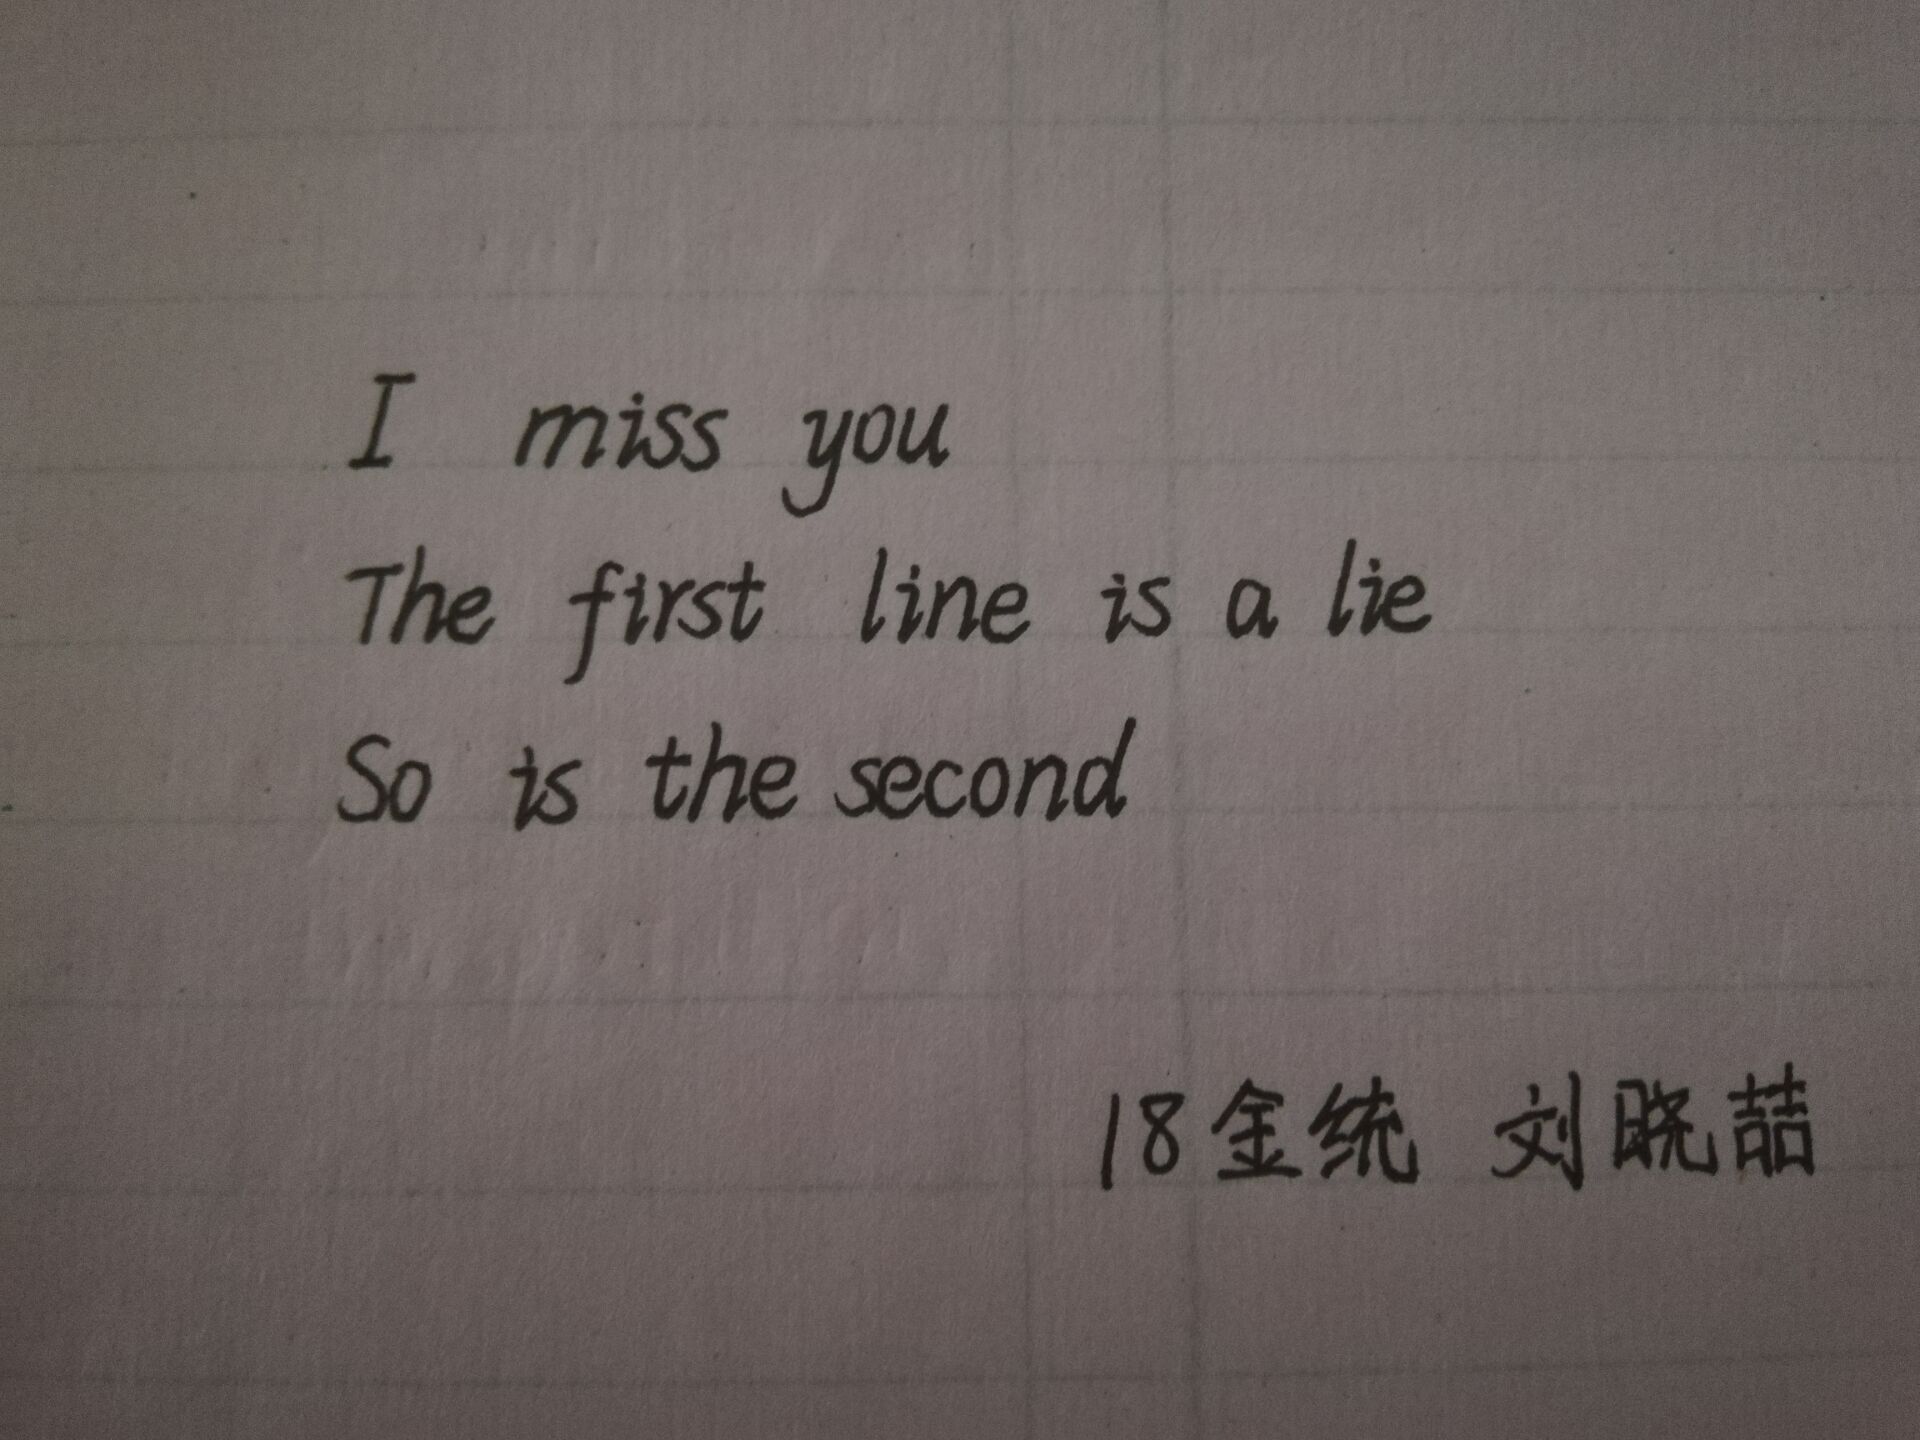 I miss you
The first line is a lie
So is the second
18金统 刘晓喆